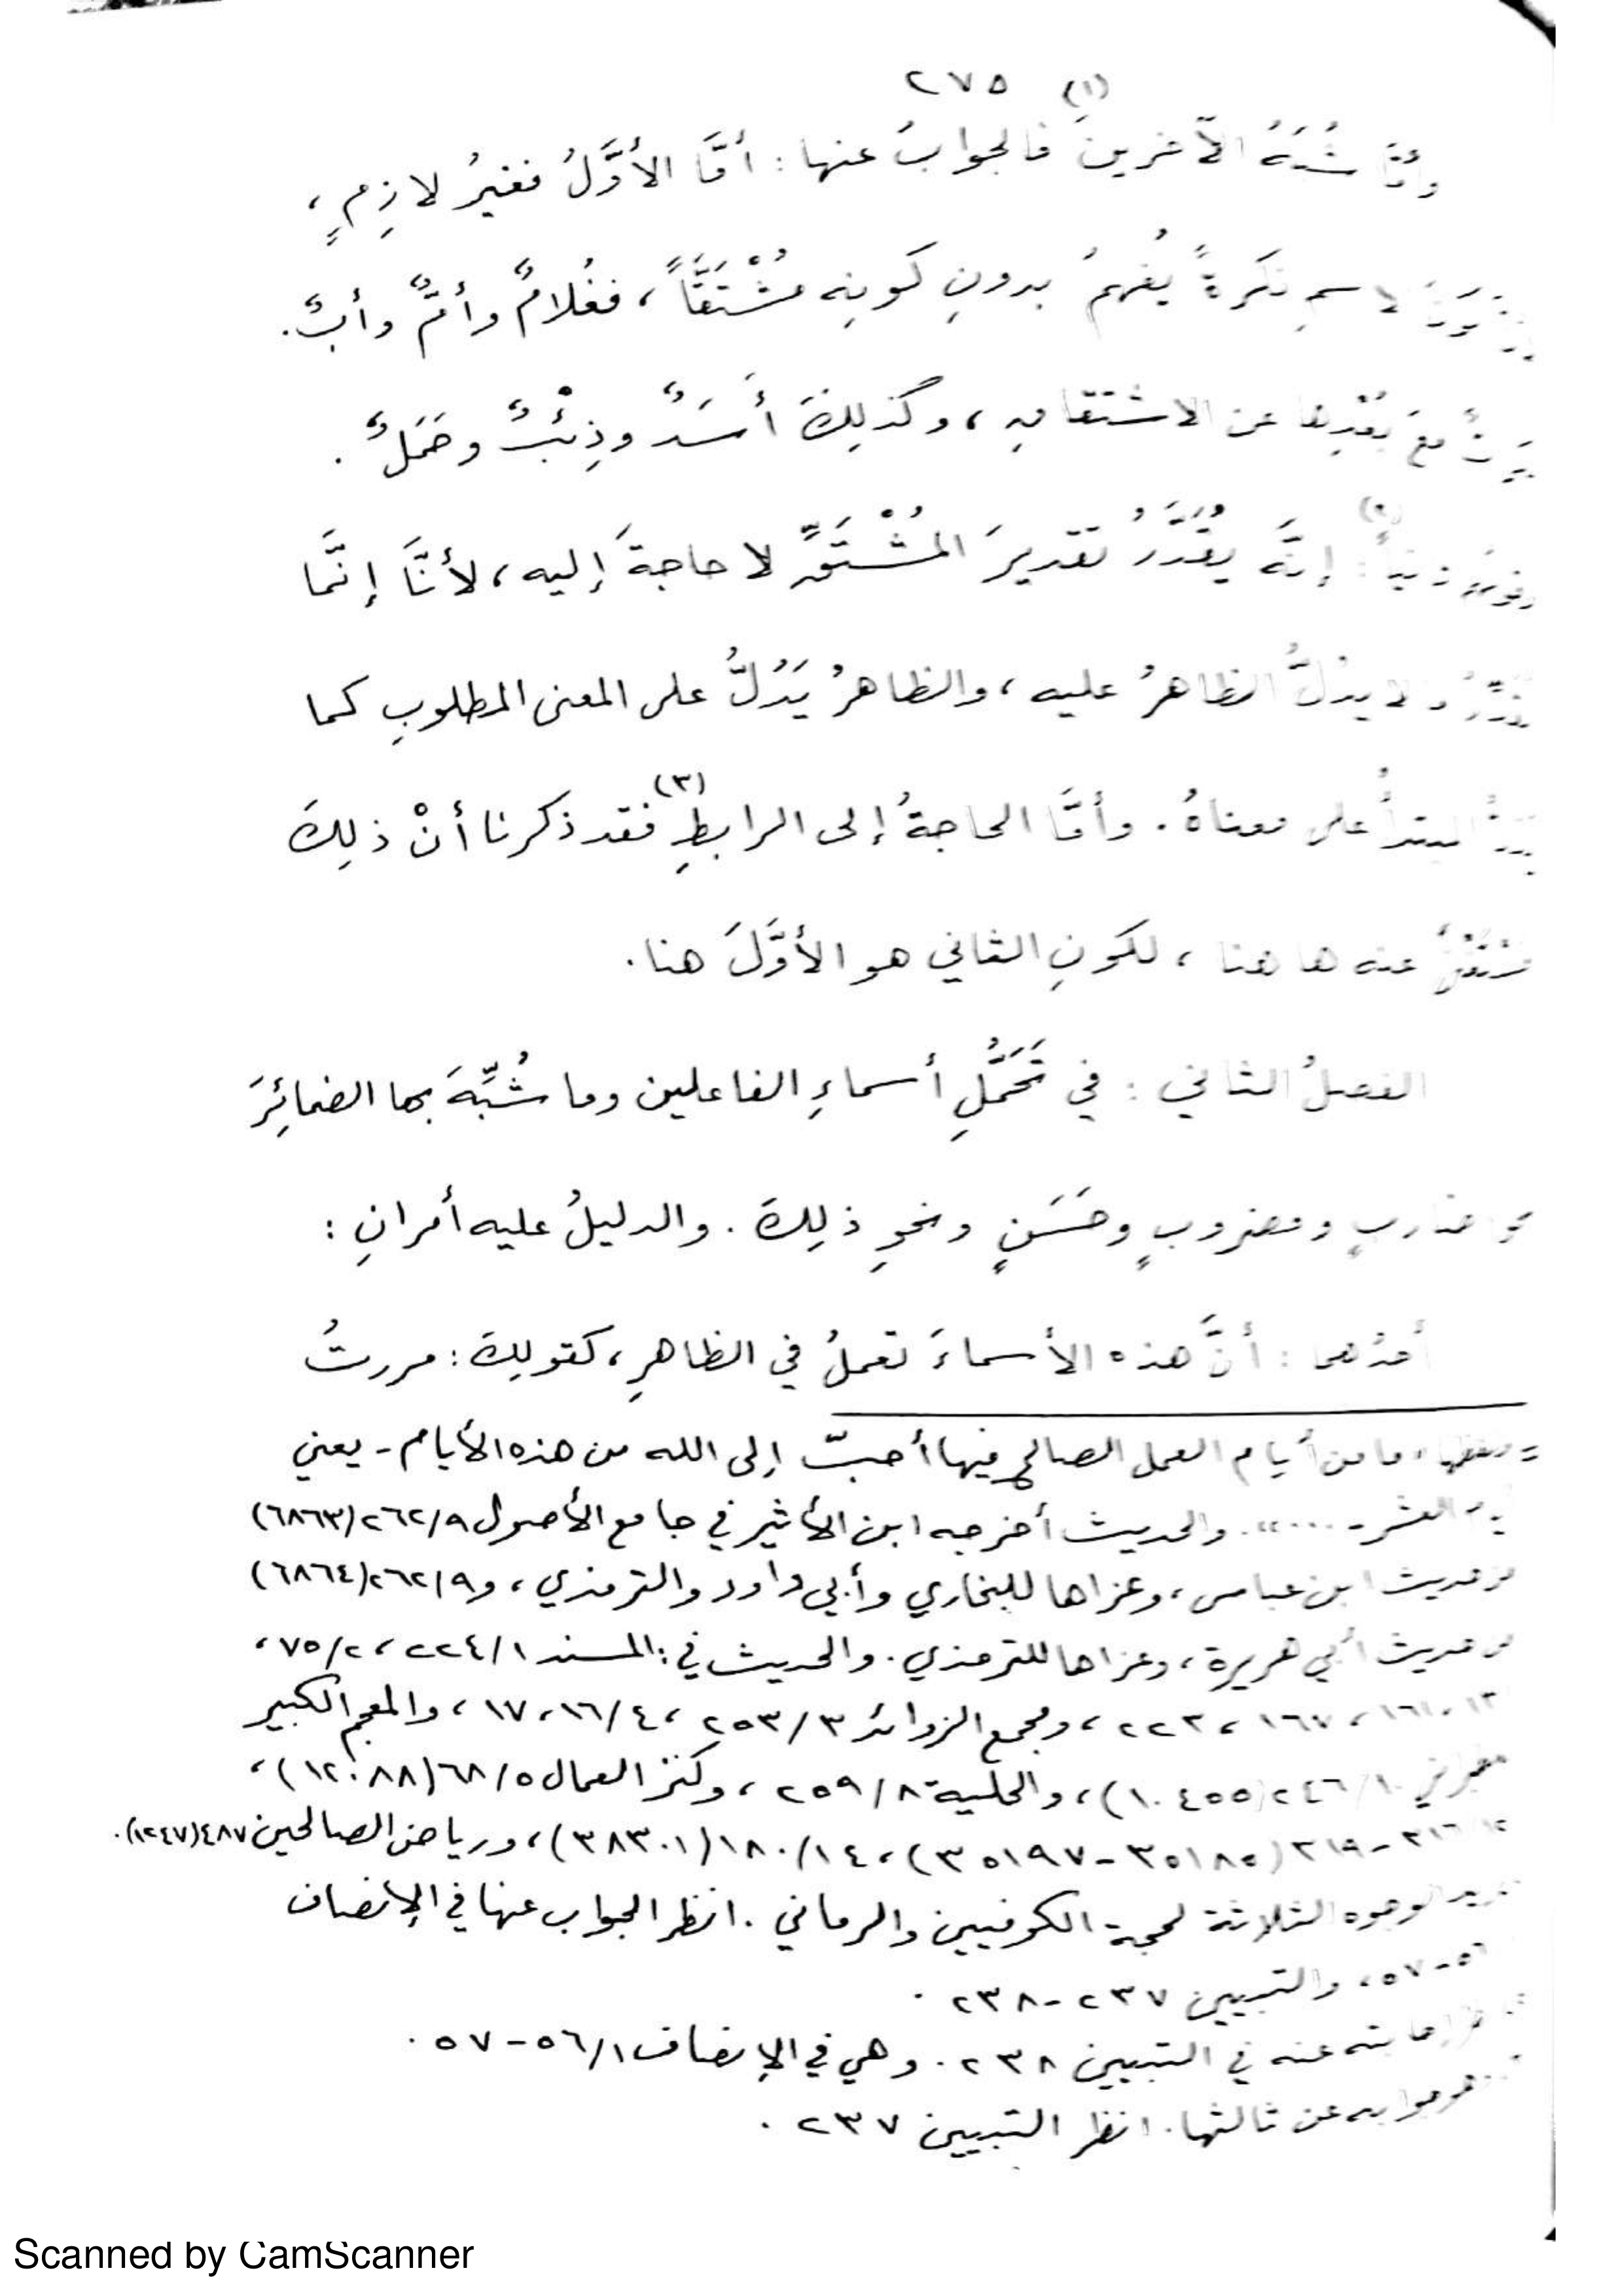 ٢٧٥
وأمّا شُبَهُ الآخرينَ (١) فالجوابُ عنها : أمَّا الأوَّلُ فغيرُ لازمٍ ،
لاسمِ نكرةً يُفهمُ بدونِ كونِه مُشْتَقَّاً ، فغُلامٌ وأمٌّ وأبٌ .
معَ بُعْدِها عن الاشتقاقِ ، وكذلِكَ أَسَدٌ وذِئْبٌ وحَمَلٌ .
(٢) : إنَّه يُقْدَّرُ تقديرَ المُشْتَقِّ لا حاجةَ إليه ، لأنَّا إنَّما
لا يدُلُّ الظاهرُ عليه ، والظاهرُ يَدُلُّ على المعنى المطلوبِ كما
المبتدأُ على معناهُ . وأمَّا الحاجةُ إلى الرابطِ (٣) فقد ذكرنا أنْ ذلِكَ
عنه ها هنا ، لكونِ الثاني هو الأوَّلَ هنا .
الفصلُ الثاني : في تَحَمُّلِ أسماءِ الفاعلين وما شُبِّهَ بها الضمائِرَ
ضاربٍ ومضروبٍ وحَسَنٍ ونحوِ ذلِكَ . والدليلُ عليه أمرانِ :
أحدُهما : أنَّ هذه الأسماءَ تعملُ في الظاهرِ ، كقولِكَ : مررتُ
= ما من أيام العمل الصالح فيها أحبّ إلى الله من هذه الأيام - يعني
العشر - ...." . والحديث أخرجه ابن الأثير في جامع الأصول ٢٦٢/٩ (٦٨٦٣)
من حديث ابن عباس ، وعزاها للبخاري وأبي داود والترمذي ، و٢٦٢/٩ (٦٨٦٤)
من حديث أبي هريرة ، وعزاها للترمذي . والحديث في : المسند ٢٢٤/١ ، ٧٥/٢ ،
١٦١ ، ١٦٧ ، ٢٢٣ ، ومجمع الزوائد ٢٥٣/٣ ، ١٦/٤ ، ١٧ ، والمعجم الكبير
٢٤٦/١٠ (١٠٤٥٥) ، والحلية ٢٥٩/٨ ، وكنز العمال ٦٨/٥ (١٢٠٨٨) ،
٣١٦ - ٣١٩ (٣٥١٨٥ - ٣٥١٩٧) ، ١٨٠/١٤ (٣٨٣٠١) ، ورياض الصالحين ٤٨٧ (١٢٤٧) .
الوجوه الثلاثة لحجة الكوفيين والرماني . انظر الجواب عنها في الإنصاف
٥٦ - ٥٧ ، والتبيين ٢٣٧ - ٢٣٨ .
إجابته عنه في التبيين ٢٣٨ . وهي في الإنصاف ٥٦/١ - ٥٧ .
هو جوابه عن ثالثها . انظر التبيين ٢٣٧ .
Scanned by CamScanner